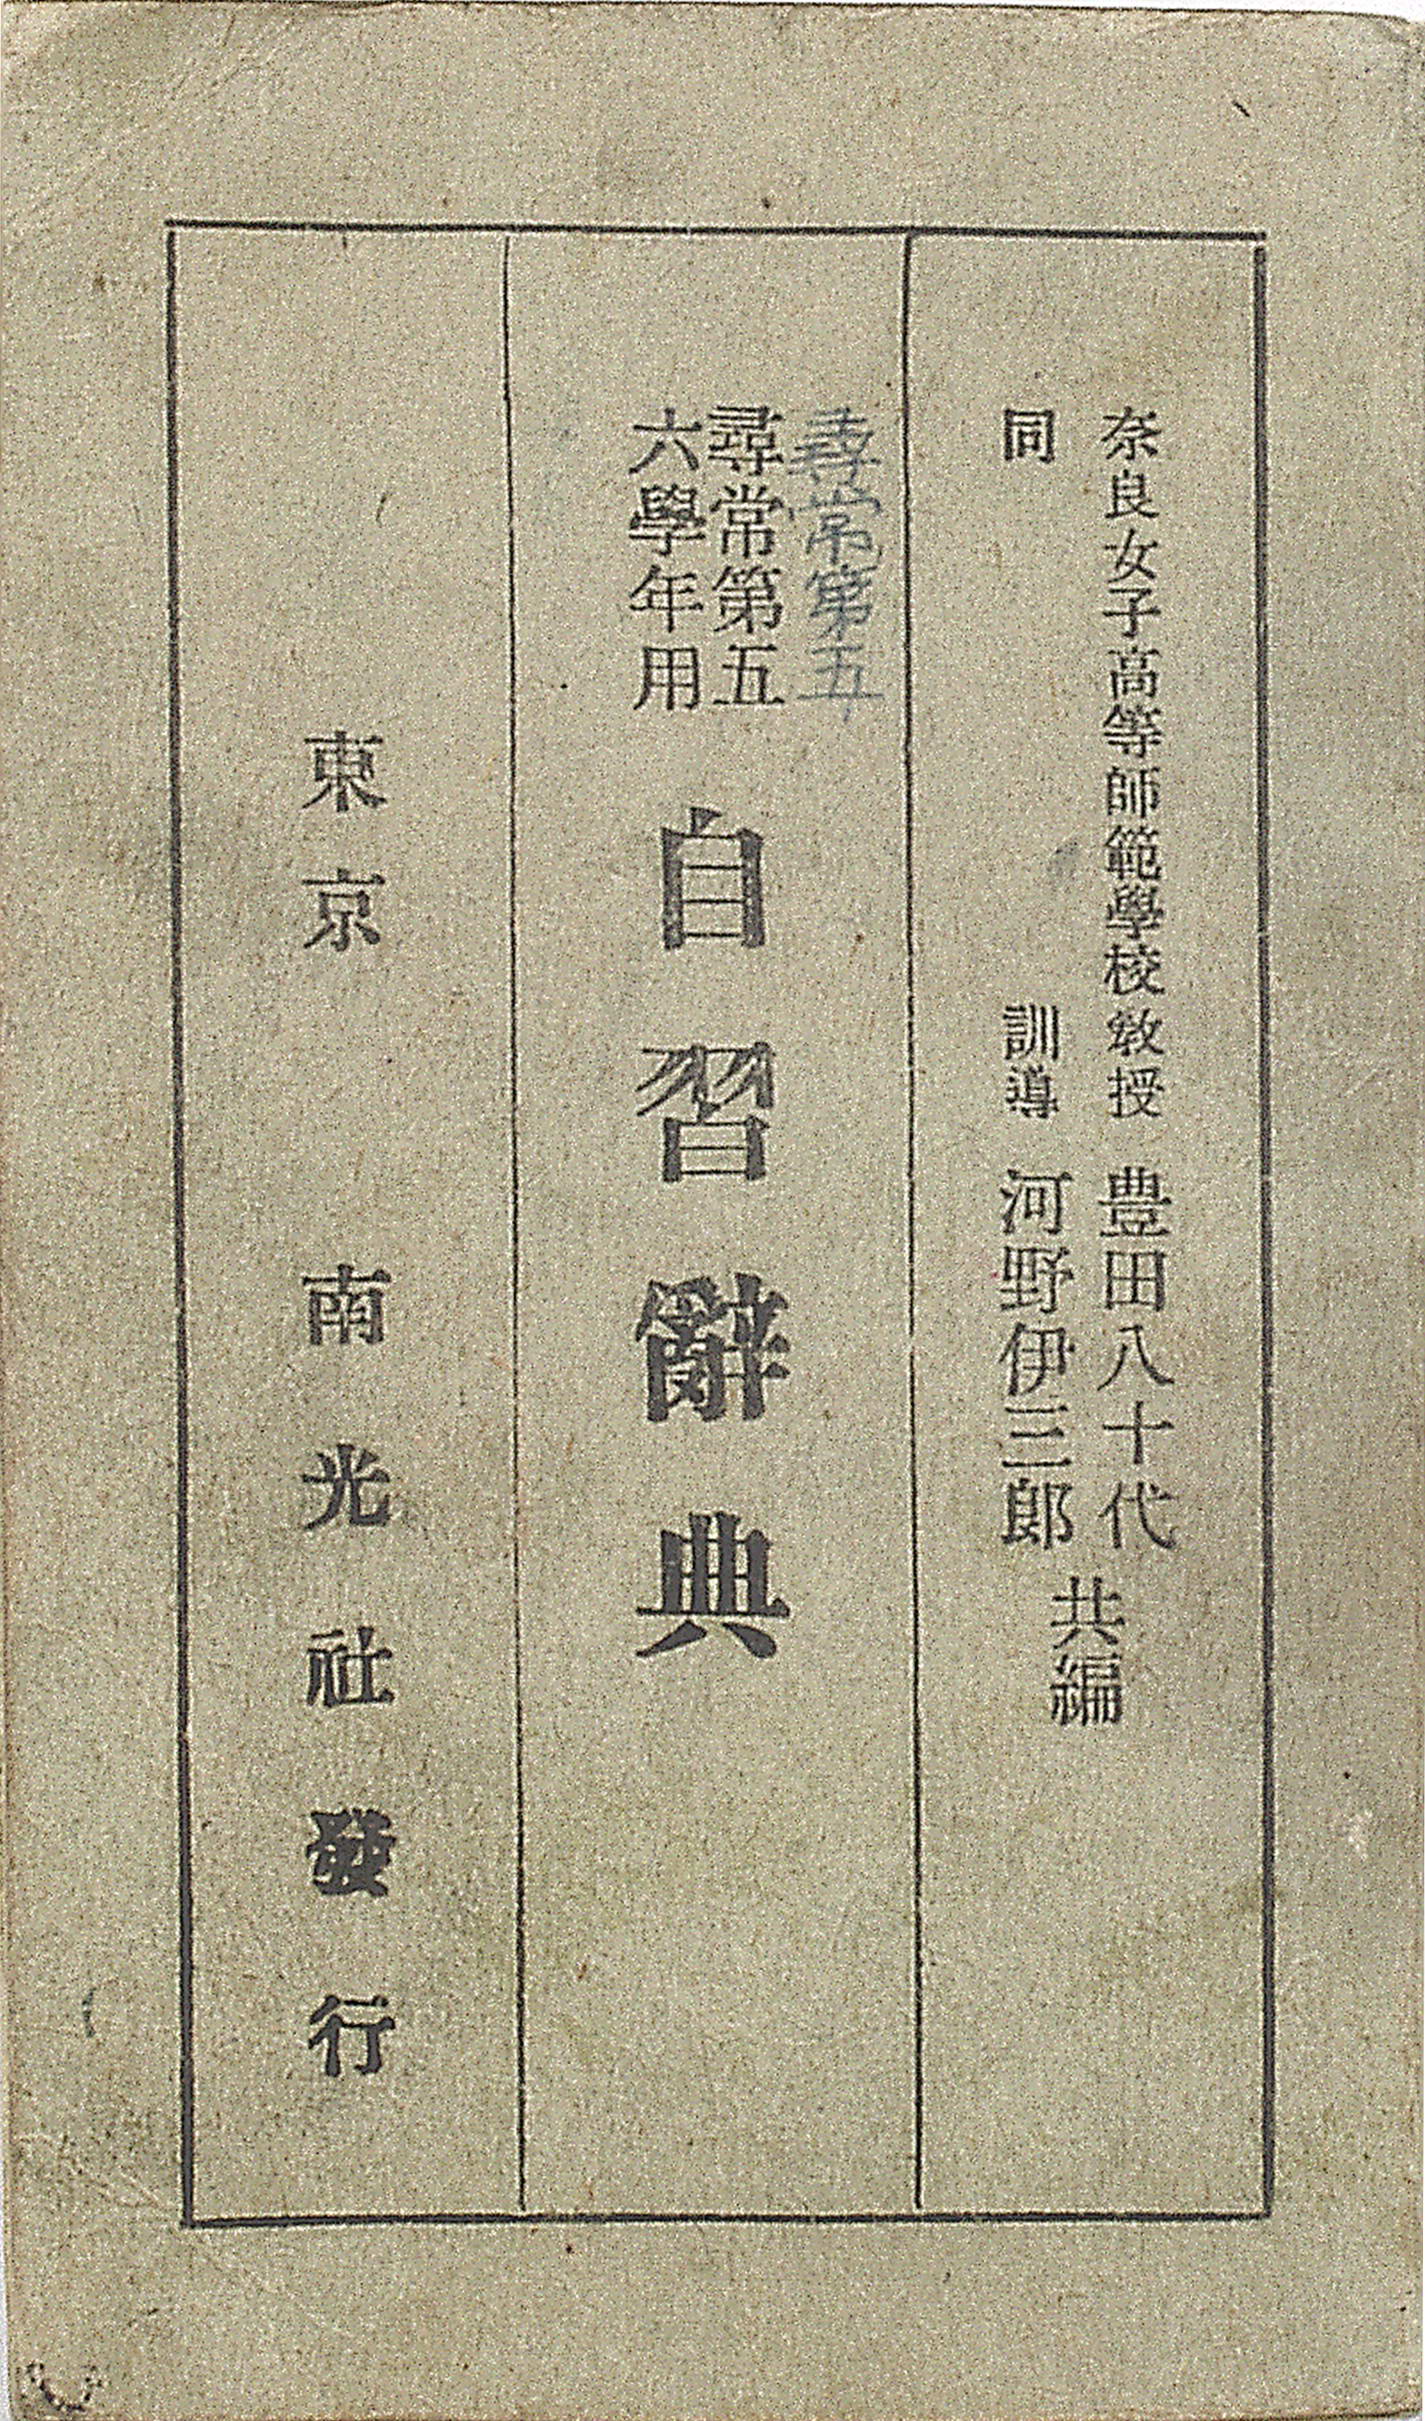 奈良女子高等師範學校教授 豊田八十代
同 訓導 河野伊三郎
共編
尋常第五
尋常第五
六學年用
自習辭典
東京 南光社發行